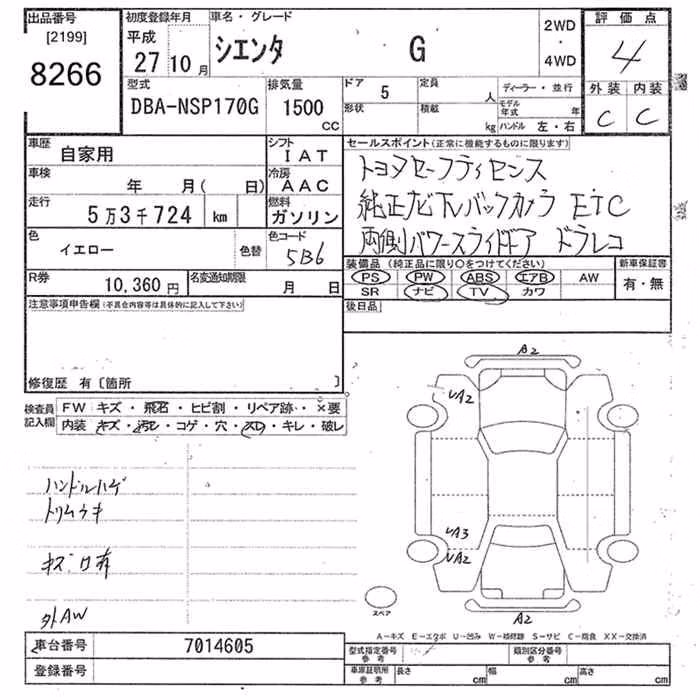 出品番号
[2199]
8266
初度登録年月
平成
27 10 月
車名・グレード
シエンタ G
2WD
・
4WD
評価点
4
外装 内装
C C
型式
DBA-NSP170G
排気量
1500
CC
ドア 5
定員 人
形状
積載 kg
ディーラー・並行
モデル年式 年
ハンドル 左・右
車歴
自家用
シフト
IAT
車検
年 月( 日)
冷房
AAC
走行
5万3千724 km
燃料
ガソリン
色
イエロー
色替
色コード
5B6
R券
10,360 円
名変通知期限
月 日
セールスポイント(正常に機能するものに限ります)
トヨタセーフティセンス
純正ナビTVバックカメラ ETC
両側パワースライドドア ドラレコ
装備品(純正品に限り○をつけてください)
PS PW ABS エアB AW
SR ナビ TV カワ
新車保証書
有・無
後日品
注意事項申告欄(不具合内容等は具体的に記入して下さい)
修復歴 有〔箇所 〕
検査員
記入欄
FW キズ・飛石・ヒビ割・リペア跡・・×要
内装 キズ・汚レ・コゲ・穴・スレ・キレ・破レ
ハンドルハゲ
トリムウキ
キズ 有
外AW
A2
UA2
UA3
UA2
A2
スペア
A-キズ E-エクボ U-凹み W-補修跡 S-サビ C-腐食 XX-交換済
車台番号
7014605
登録番号
型式指定番号
参考
類別区分番号
参考
車庫証明所
参考
長さ cm 幅 cm 高さ cm